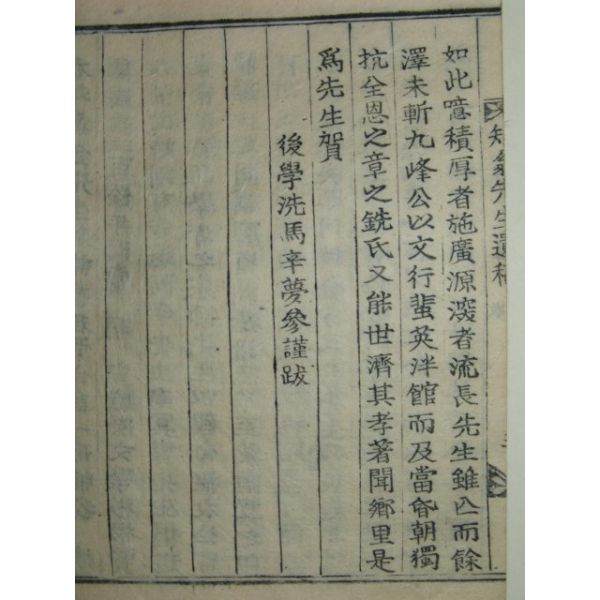 如此噫積厚者施廣源深者流長先生雖亡而餘
澤未斬九峰公以文行蜚英泮館而及當昏朝獨
抗全恩之章之銑氏又能世濟其孝著聞鄉里是
爲先生賀
後學洗馬辛夢參謹跋
先生遺稿